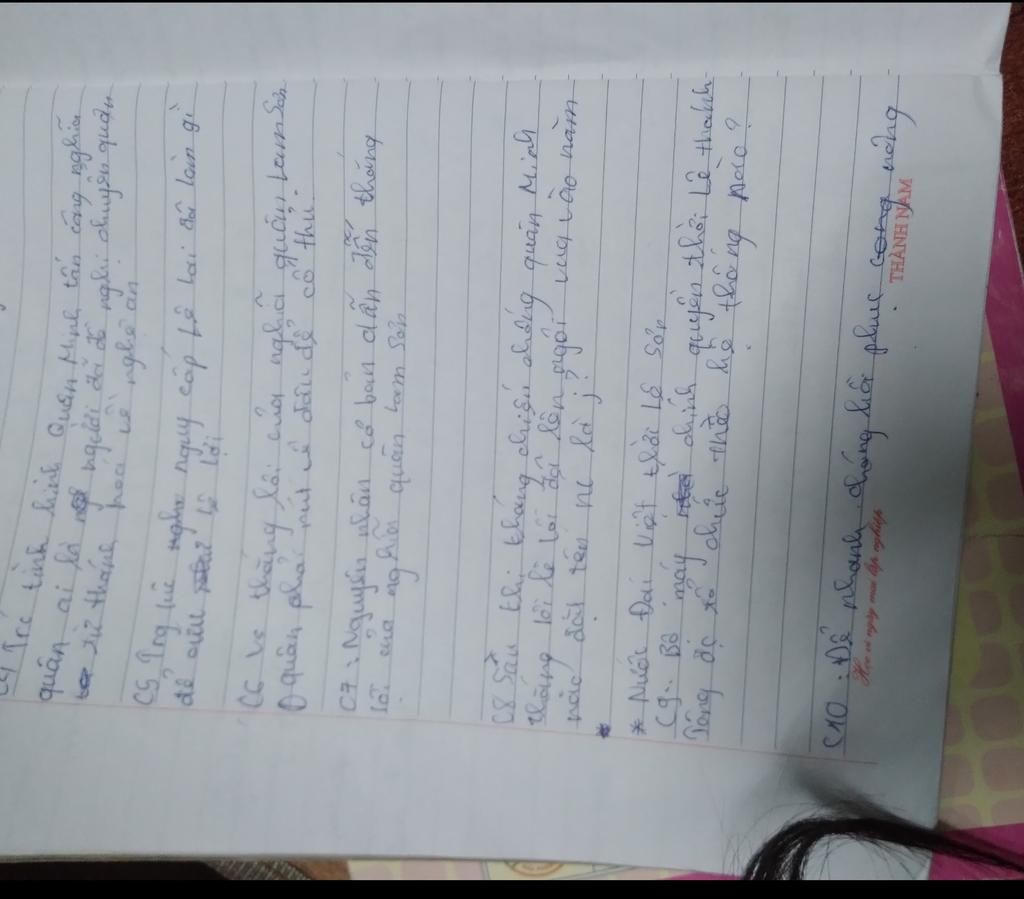 C4 Trc tình hình Quân Minh tấn công nghĩa
quân ai là người đã đề nghị chuyển quân
từ thánh hoá về nghệ an
C5 Trg lúc nguy cấp Lê Lai đã làm gì
để cứu Lê Lợi
C6 Vs thắng lôi của nghĩa quân Lam Sơn
quân phải rút về đâu để cố thủ.
C7: Nguyên nhân cơ bản dẫn đến thắng
lợi của nghĩa quân Lam Sơn
C8 Sau khi kháng chiến chống quân Minh
thắng lợi lê lợi đã lên ngôi vua vào năm
nào đặt tên nc là j?
* Nước Đại Việt thời Lê Sơ
C9.. Bộ máy chính quyền thời Lê thanh
Tông đc tổ chức theo hệ thống nào?
C10: Để nhanh chóng hồi phục nông
THÀNH NAM
Học vì ngày mai lập nghiệp